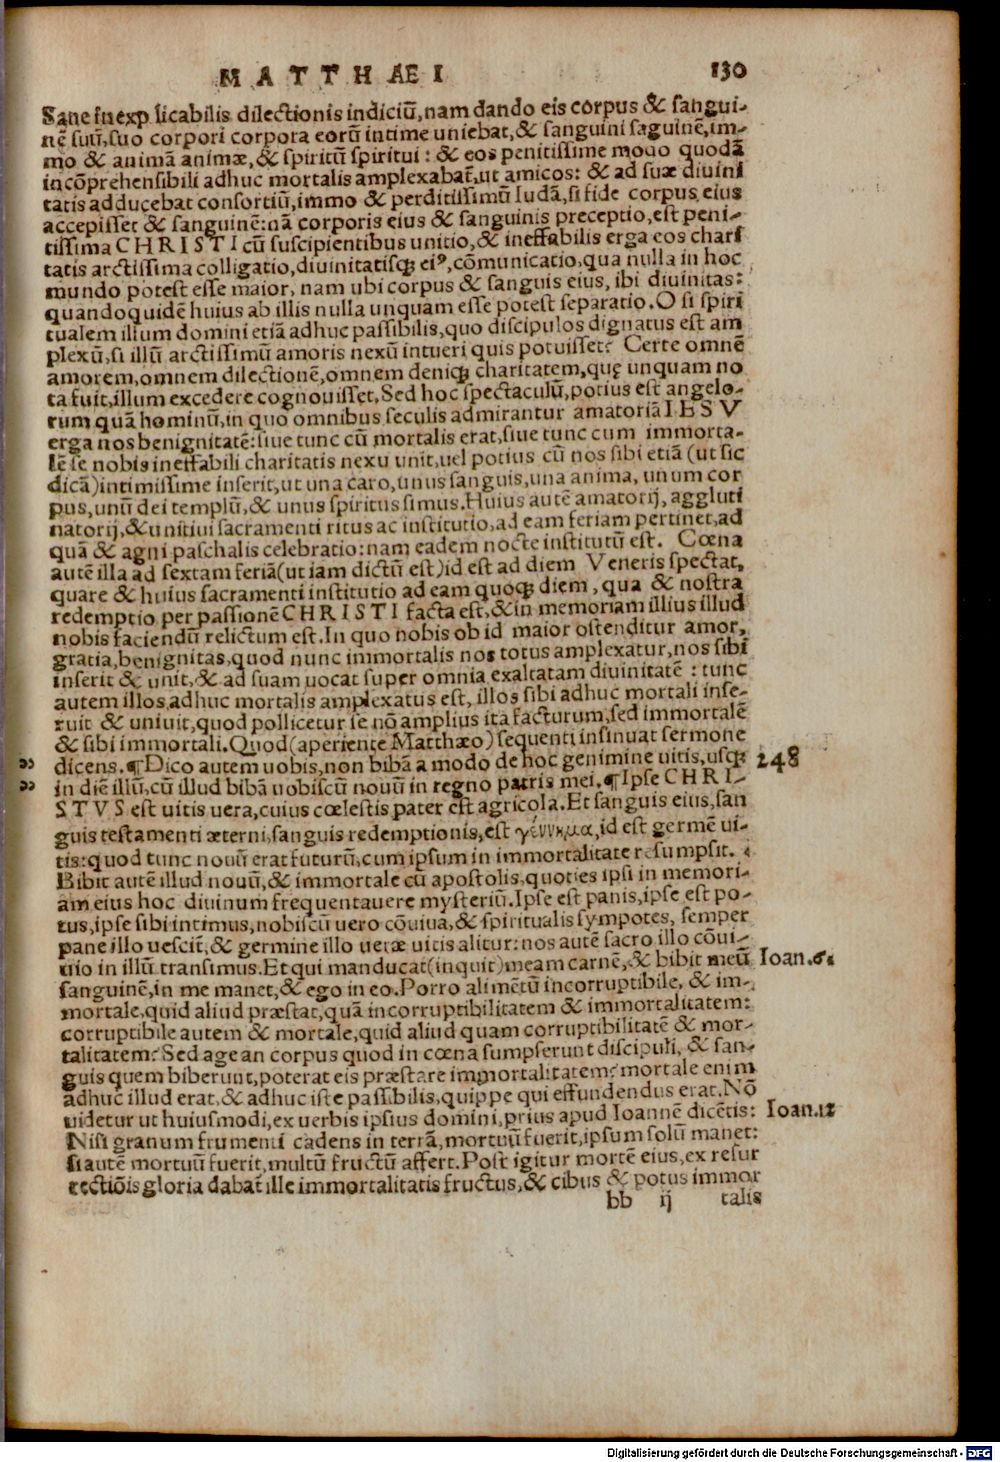 MATTHAEI 130
Sane inexplicabilis dilectionis indiciū, nam dando eis corpus & sangui-
nē suū, suo corpori corpora eorū intime uniebat, & sanguini saguinē, im-
mo & animā animæ, & spiritū spiritui : & eos penitissime modo quodā
incōprehensibili adhuc mortalis amplexabat, ut amicos: & ad suæ diuini
tatis adducebat consortiū, immo & perditissimū Iudā, si fide corpus eius
accepisset & sanguinē: nā corporis eius & sanguinis preceptio, est peni-
tissima CHRISTI cū suscipientibus unitio, & ineffabilis erga eos chari
tatis arctissima colligatio, diuinitatisq; eiꝰ, cōmunicatio, qua nulla in hoc
mundo potest esse maior, nam ubi corpus & sanguis eius, ibi diuinitas:
quandoquidē huius ab illis nulla unquam esse potest separatio. O si spiri
tualem illum domini etiā adhuc passibilis, quo discipulos dignatus est am
plexū, si illū arctissimū amoris nexū intueri quis potuisset? Certe omnē
amorem, omnem dilectionē, omnem deniq; charitatem, quę unquam no
ta fuit, illum excedere cognouisset, Sed hoc spectaculū, potius est angelo-
rum quā hominū, in quo omnibus seculis admirantur amatoriā IESV
erga nos benignitatē: siue tunc cū mortalis erat, siue tunc cum immorta-
lē se nobis ineffabili charitatis nexu unit, uel potius cū nos sibi etiā (ut sic
dicā) intimissime inserit, ut una caro, unus sanguis, una anima, unum cor
pus, unū dei templū, & unus spiritus simus. Huius autē amatorij, aggluti
natorij, & unitiui sacramenti ritus ac institutio, ad eam feriam pertinet, ad
quā & agni paschalis celebratio: nam eadem nocte institutū est. Cœna
autē illa ad sextam feriā (ut iam dictū est) id est ad diem Veneris spectat,
quare & huius sacramenti institutio ad eam quoq; diem, qua & nostra
redemptio per passionē CHRISTI facta est, & in memoriam illius illud
nobis faciendū relictum est. In quo nobis ob id maior ostenditur amor,
gratia, benignitas, quod nunc immortalis nos totus amplexatur, nos sibi
inserit & unit, & ad suam uocat super omnia exaltatam diuinitatē : tunc
autem illos, adhuc mortalis amplexatus est, illos sibi adhuc mortali inse-
ruit & uniuit, quod pollicetur se nō amplius ita facturum, sed immortalē
& sibi immortali. Quod (aperiente Matthæo) sequenti insinuat sermone
dicens. ¶ Dico autem uobis, non bibā a modo de hoc genimine uitis, usq; 248
in diē illū, cū illud bibā uobiscū nouū in regno patris mei. ¶ Ipse CHRI-
STVS est uitis uera, cuius cœlestis pater est agricola. Et sanguis eius, san
guis testamenti æterni, sanguis redemptionis, est γέννημα, id est germē ui-
tis: quod tunc nouū erat futurū, cum ipsum in immortalitate resumpsit.
Bibit autē illud nouū, & immortale cū apostolis, quoties ipsi in memori-
am eius hoc diuinum frequentauere mysteriū. Ipse est panis, ipse est po-
tus, ipse sibi intimus, nobiscū uero cōuiua, & spiritualis sympotes, semper
pane illo uescit, & germine illo ueræ uitis alitur: nos autē sacro illo cōui-
uio in illū transimus. Et qui manducat (inquit) meam carnē, & bibit meū Ioan. 6.
sanguinē, in me manet, & ego in eo. Porro alimētū incorruptibile, & im-
mortale, quid aliud præstat, quā incorruptibilitatem & immortalitatem:
corruptibile autem & mortale, quid aliud quam corruptibilitatē & mor-
talitatem? Sed age an corpus quod in cœna sumpserunt discipuli, & san-
guis quem biberunt, poterat eis præstare immortalitatem? mortale enim
adhuc illud erat, & adhuc iste passibilis, quippe qui effundendus erat. Nō
uidetur ut huiusmodi, ex uerbis ipsius domini, prius apud Ioannē dicētis: Ioan. 12
Nisi granum frumenti cadens in terrā, mortuū fuerit, ipsum solū manet:
si autē mortuū fuerit, multū fructū affert. Post igitur mortē eius, ex resur
rectiōis gloria dabat ille immortalitatis fructus, & cibus & potus immor
bb ij talis
Digitalisierung gefördert durch die Deutsche Forschungsgemeinschaft - DFG